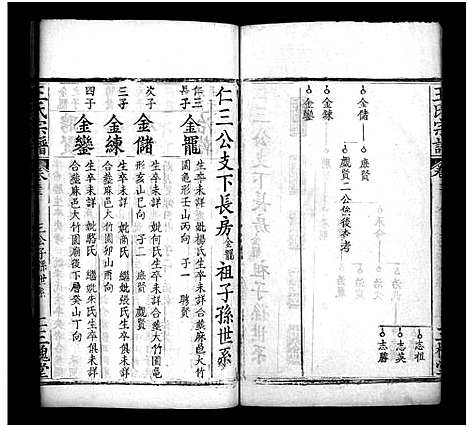 王氏宗譜
金儲
應賢
戲賢二公無後考
金鍊
金鑾
志祖
志英
志勝
三槐堂
仁三公支下長房金龍祖子孫世系
仁三公
長子
金龍
生卒未詳 妣楊氏生卒未詳合葬麻邑大竹園
龜形壬山丙向 子一 聘賢
次子
金儲
生卒未詳 妣何氏生卒未詳合葬大竹園龜
形亥山巳向 子二 應賢 戲賢
三子
金鍊
生卒未詳 妣尚氏 繼妣張氏生卒俱未詳
合葬麻邑大竹園卯山酉向
四子
金鑾
生卒未詳 妣駱氏 繼妣朱氏生卒俱未詳
合葬麻邑大竹園廟後下層癸山丁向
王氏宗譜
三公子孫世系
三槐堂